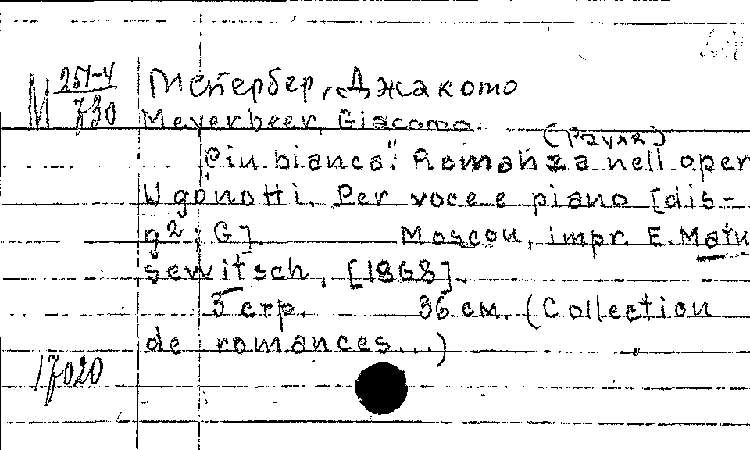 М 251-4/730
Мейербер, Джакомо
Meyerbeer, Giacomo.
(Рауля)
„Piu bianca". Romanza nell oper
Ugonotti. Per voce e piano [dis-
g²; G]. Moscou, impr. E. Matu
sewitsch, [1868].
5 стр. 36 см. (Collection
de romances...)
17020